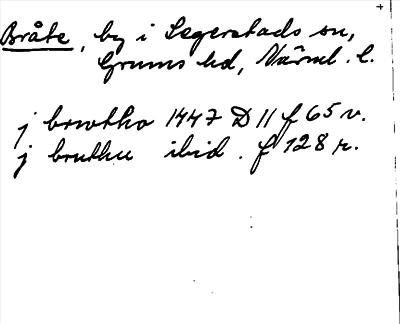 Bråte, by i Segerstads sn,
Grums hd, Värml. l.
j browtho 1447 D 11 f 65 v.
j bruthu ibid. f 128 r.